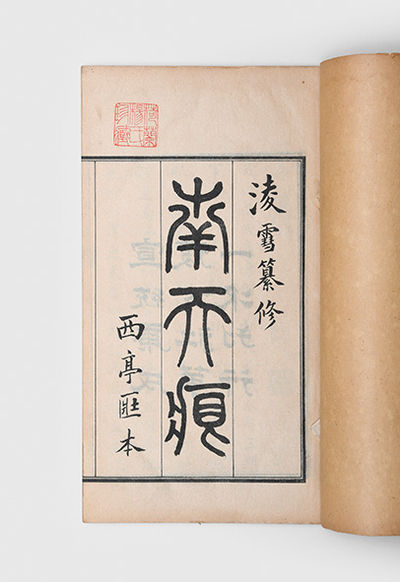 淩雪纂修
南天痕
西亭匯本